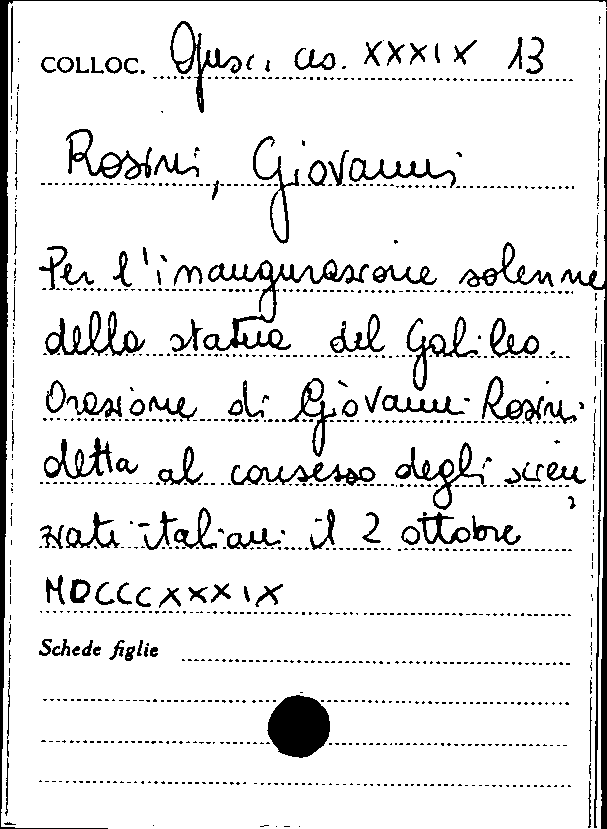 COLLOC. Opusc. cus. XXXIX 13
Rosini, Giovanni
Per l'inaugurazione solenne
della statua del Galileo.
Orazione di Giovanni Rosini
detta al consesso degli scien
ziati italiani il 2 ottobre
MDCCCXXXIX
Schede figlie